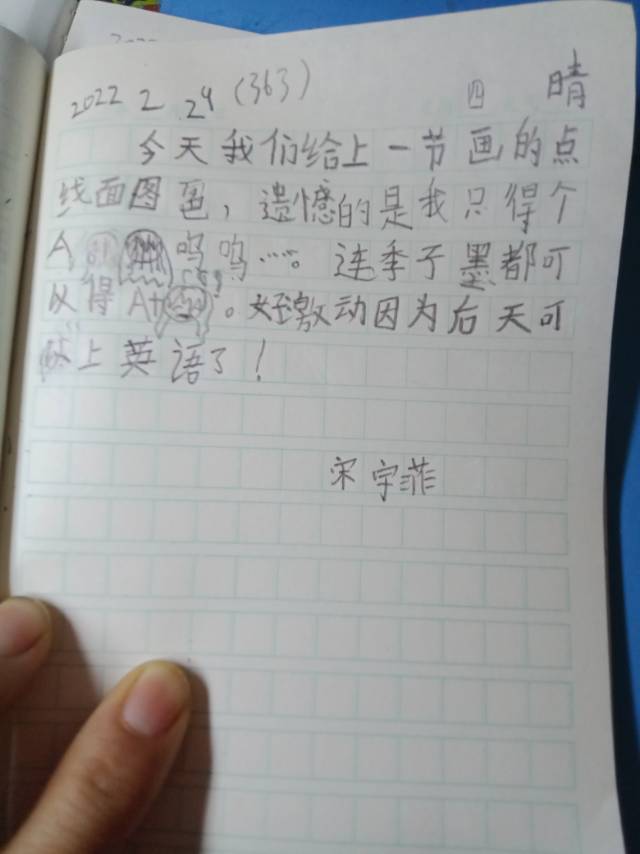 2022 2 24 (363) 四 晴
今天我们给上一节画的点
线面图色，遗憾的是我只得个
A 呜呜……。连季子墨都可
以得A+。好激动因为后天可
以上英语了！
宋宇菲